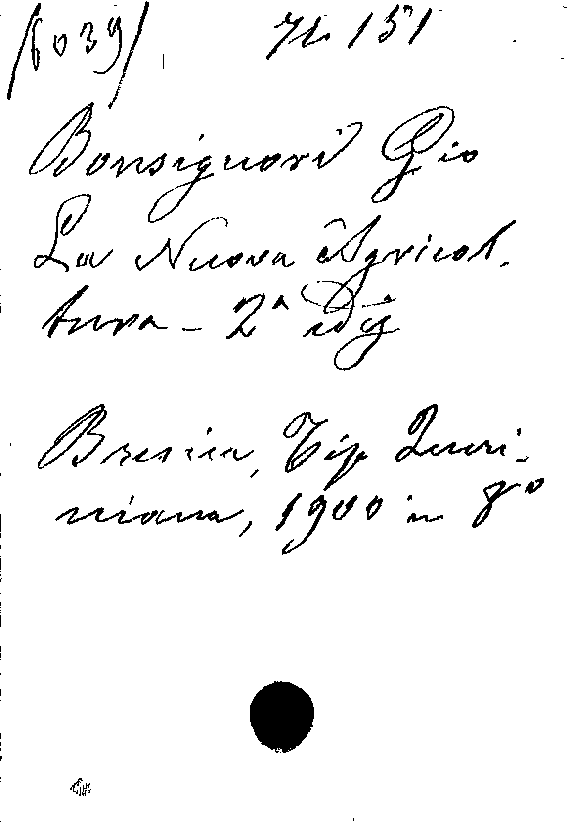 /6039/ H. 151
Bonsignori Gio
La Nuova Agricol-
tura - 2ª ediz
Brescia, Tip Queri-
niana, 1900 in 8º